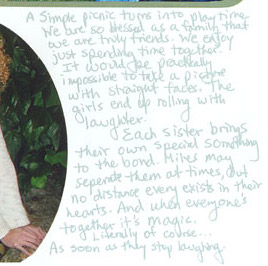 A Simple picnic turns into play time.
We are so blessed as a family that
we are truly friends. We enjoy
just spending time together.
It would be practically
impossible to take a picture
with straight faces. The
girls end up rolling with
laughter.
Each sister brings
their own special something
to the bond. Miles may
seperate them at times, but
no distance every exists in their
hearts. And when everyone's
together it's magic.
Literally of course...
As soon as they stop laughing.